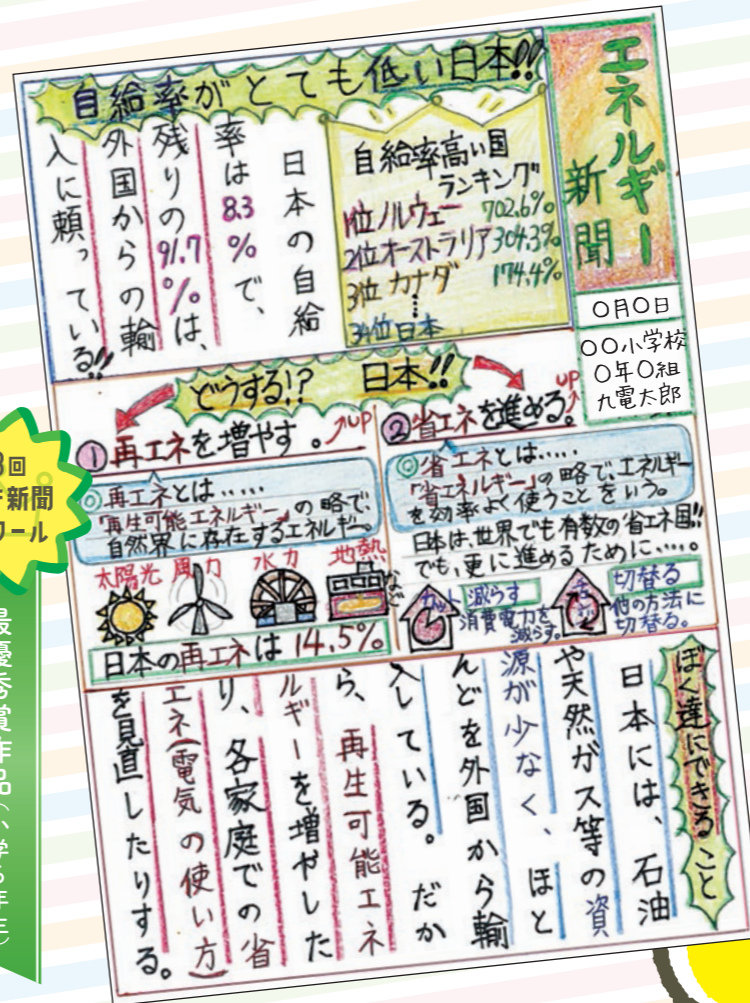 エネルギー
新聞
〇月〇日
〇〇小学校
〇年〇組
九電太郎
自給率がとても低い日本!!
自給率高い国
ランキング
1位ノルウェー 702.6%
2位オーストラリア 304.3%
3位 カナダ 174.4%
⋮
34位 日本
日本の自給
率は8.3%で、
残りの91.7%は、
外国からの輸
入に頼っている!!
どうする!? 日本!!
①再エネを増やす。UP
◎再エネとは‥‥‥
「再生可能エネルギー」の略で、
自然界に存在するエネルギー。
太陽光 風力 水力 地熱 など
日本の再エネは14.5%
②省エネを進める。UP
◎省エネとは‥‥‥
「省エネルギー」の略で、エネルギー
を効率よく使うことをいう。
日本は、世界でも有数の省エネ国!!
でも、更に進めるために‥‥。
カット
減らす
消費電力を
減らす。
切替る
他の方法に
切替る。
ぼく達にできること
日本には、石油
や天然ガス等の資
源が少なく、ほと
んどを外国から輸
入している。だか
ら、再生可能エネ
ルギーを増やした
り、各家庭での省
エネ(電気の使い方)
を見直したりする。
回
新聞
クール
最優秀賞作品